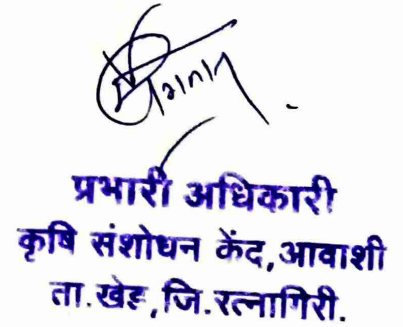 प्रभारी अधिकारी
कृषि संशोधन केंद,आवाशी
ता.खेड,जि.रत्नागिरी.